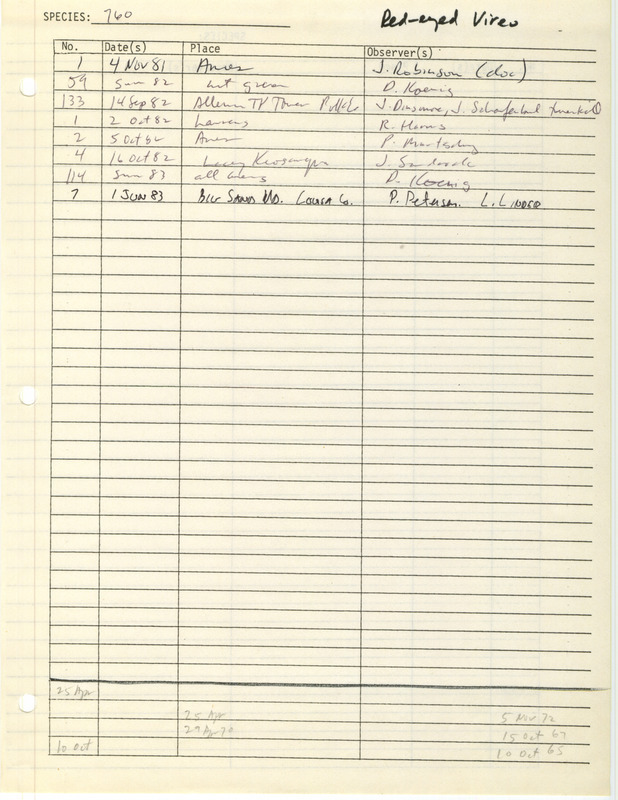 SPECIES: 760 Red-eyed Vireo
No. Date(s) Place Observer(s)
1 4 Nov 81 Ames J. Robinson (doc)
59 Sum 82 D. Koenig
133 14 Sep 82 TV Tower J. Dinsmore, J.
1 2 Oct 82 Laurens R. Harms
2 5 Oct 82 Ames P. Martsching
4 16 Oct 82 Lacey Keosauqua J. Sandrock
114 Sum 83 all D. Koenig
7 1 JUN 83 BIG SAND MD. LOUISA Co. P. PETERSEN. L. LINDER
25 Apr
25 Apr 5 Nov 72
29 Apr 70 15 Oct 67
10 Oct 10 Oct 65